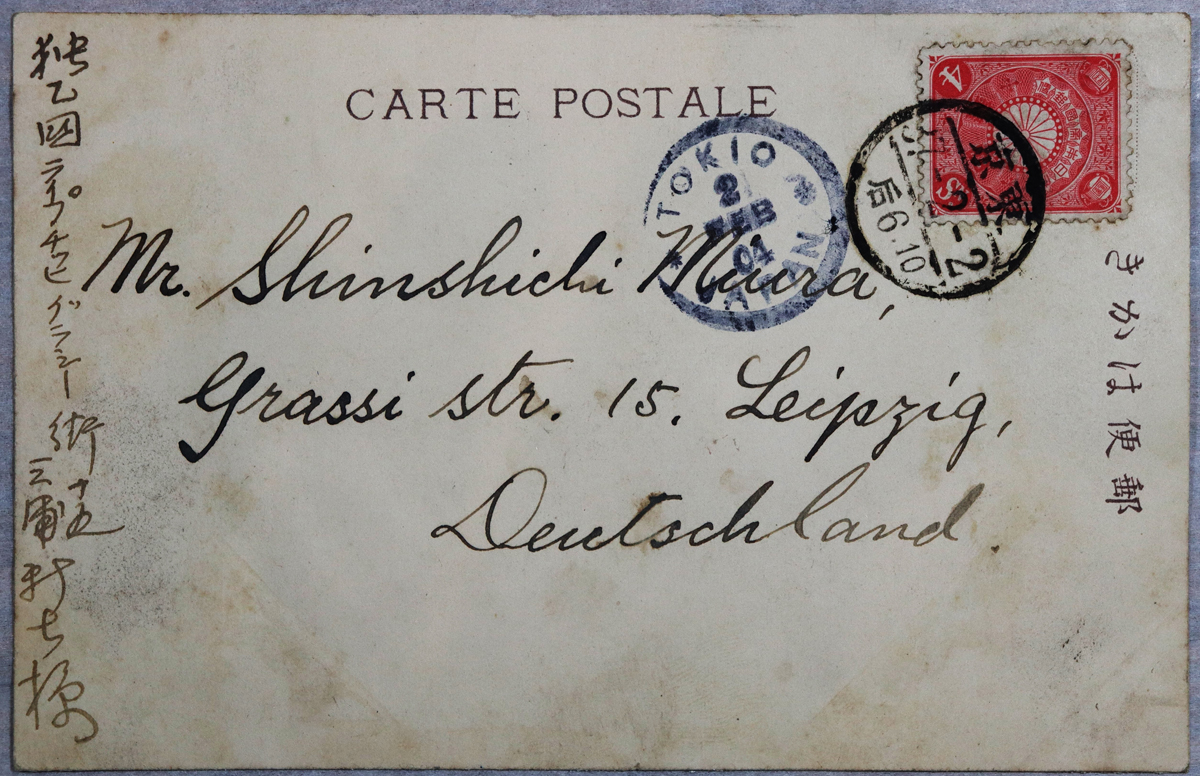 CARTE POSTALE
TOKIO
2
FEB
04
JAPAN
東京
37-2-2
后6.10
4
S
大日本帝国郵便
Mr. Shinshichi Miura,
Grassi str. 15. Leipzig,
Deutschland.
きかは便郵
独乙国ライプチヒグラシー街十五
三浦新七様